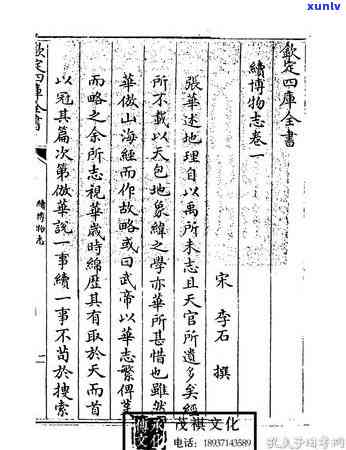 xunlv
欽定四庫全書
續博物志卷一
宋 李石 撰
張華述地理自以禹所未志且天官所遺多矣經
所不載以天包地象緯之學亦華所甚惜也雖然
華倣山海經而作故略或曰武帝以華志繁俾芟
而略之余所志視華歲時綿歷具有取於天而首
以冠其篇次第倣華說一事續一事不苟於搜索
欽定四庫全書
續博物志
茂祺文化
电话：18937143589
孔夫子旧书网